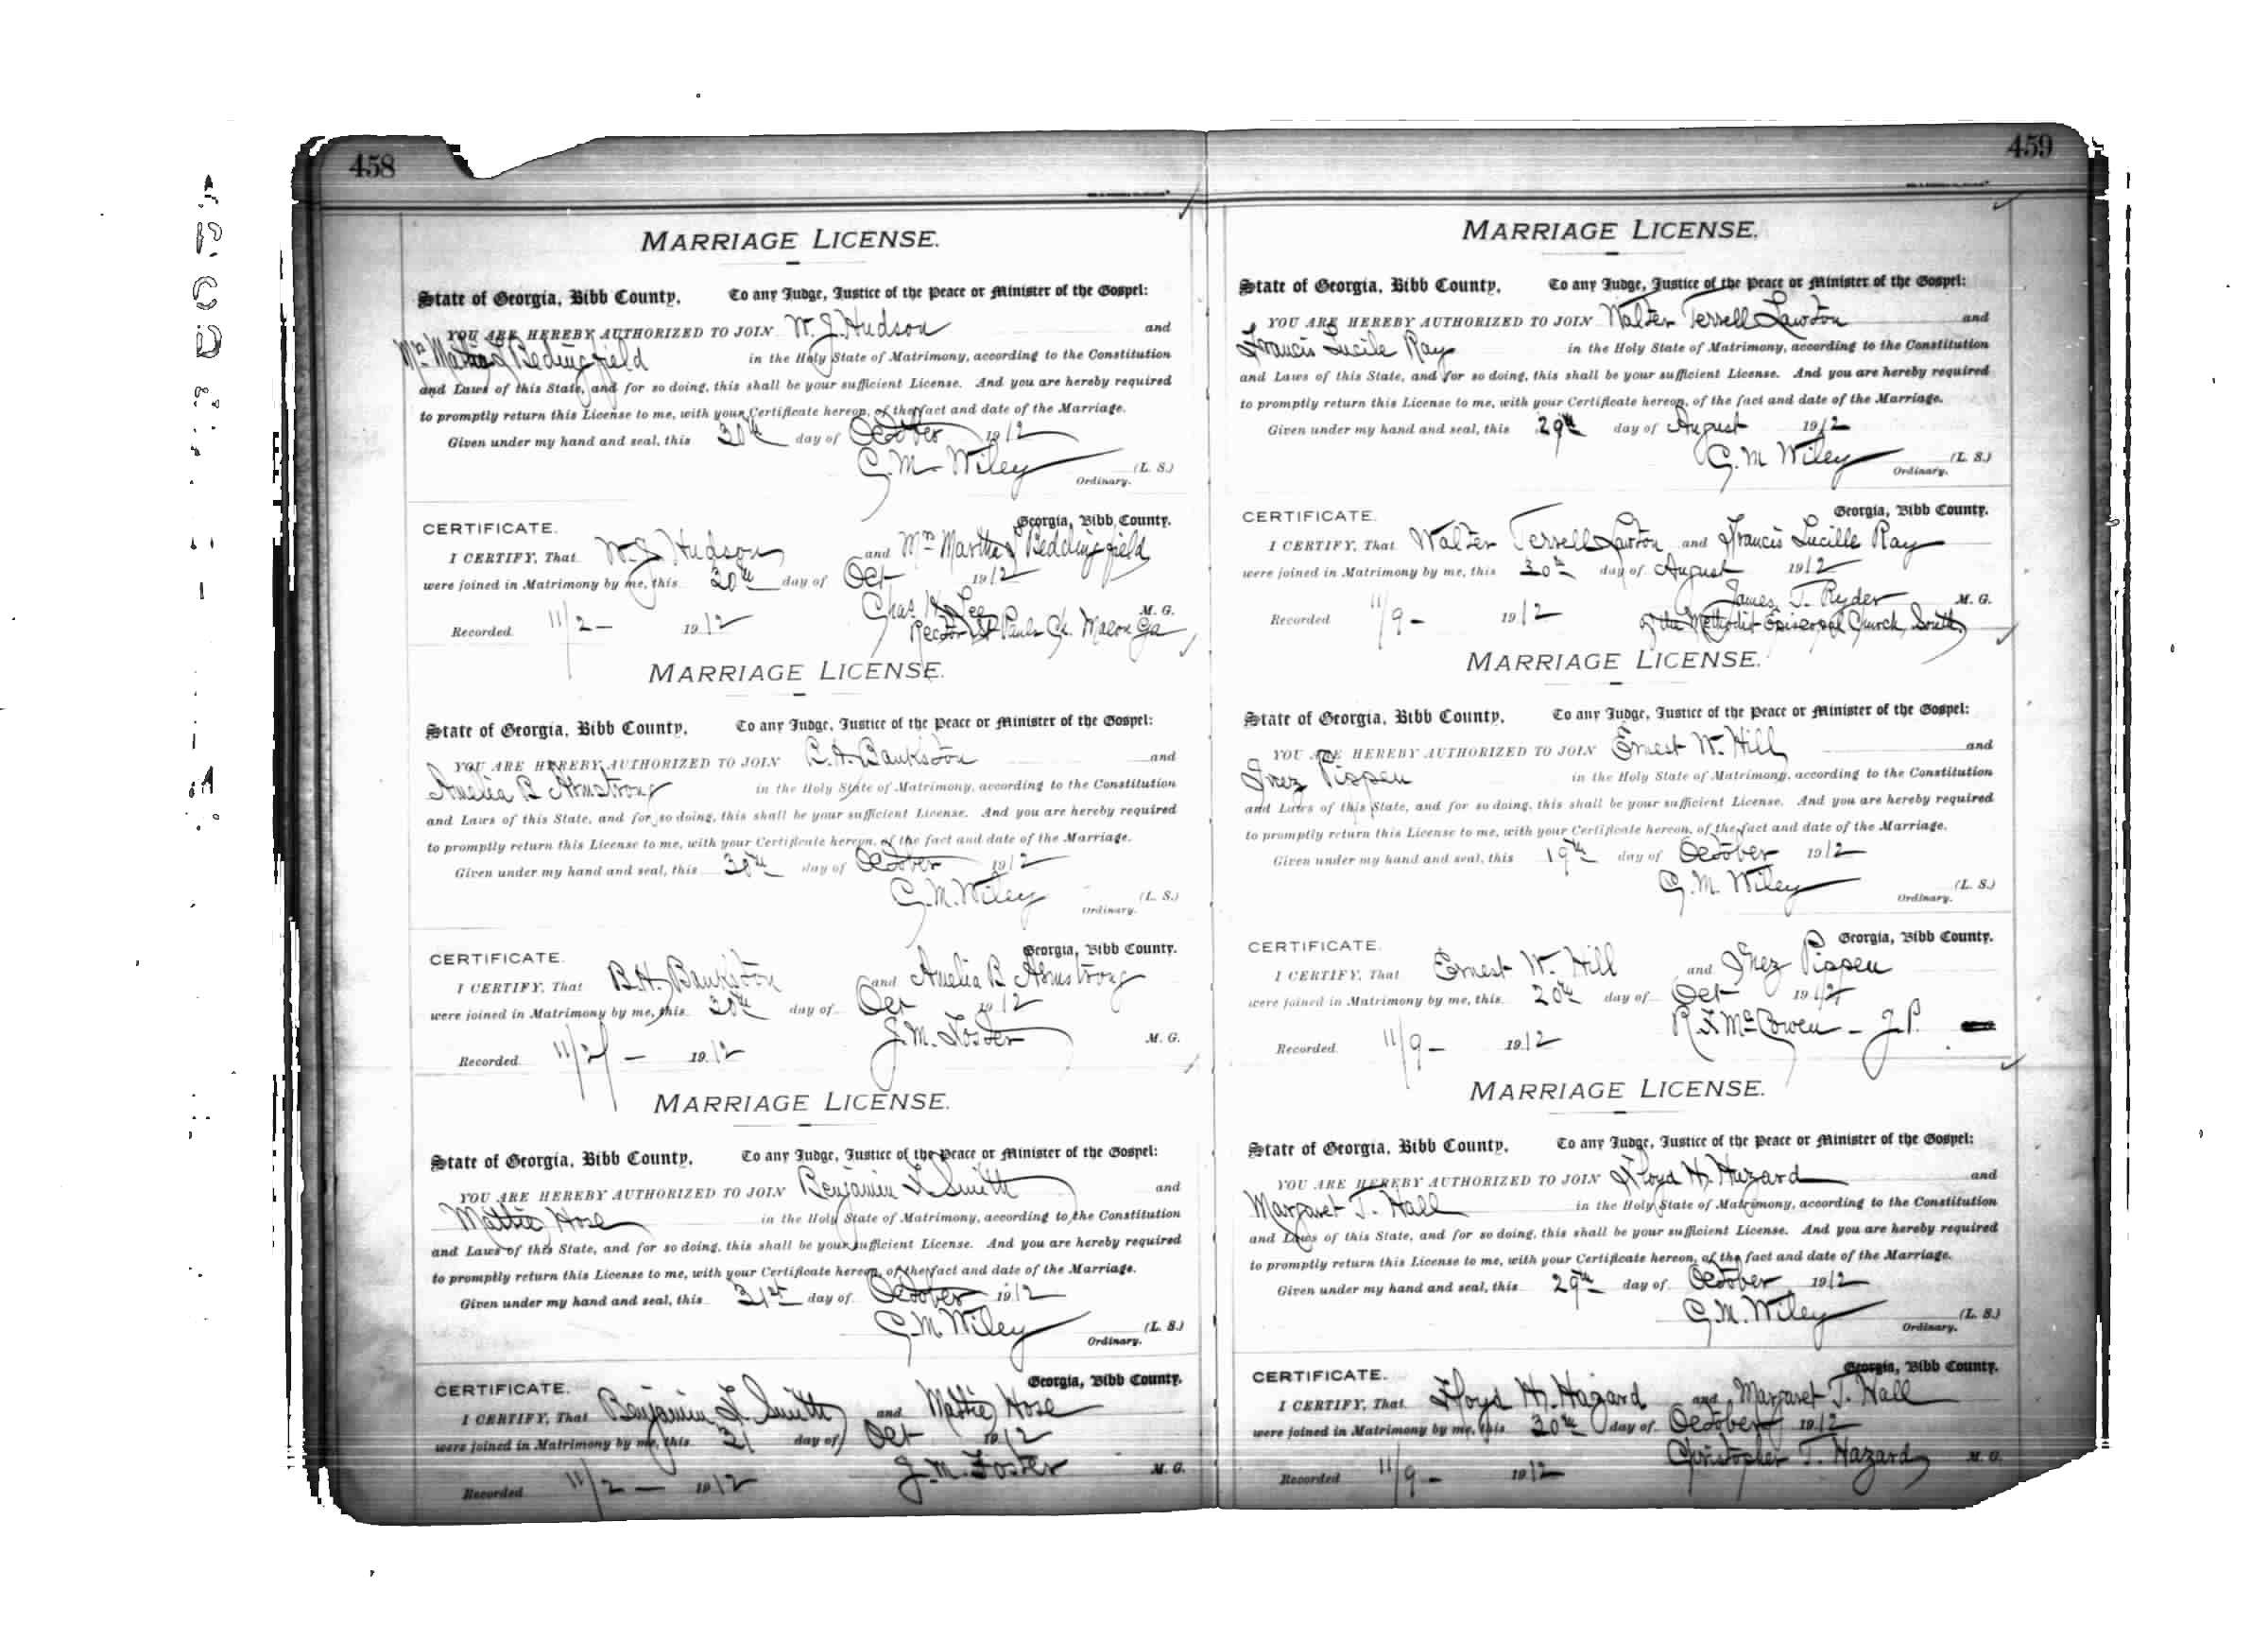 458
MARRIAGE LICENSE.
State of Georgia, Bibb County. To any Judge, Justice of the Peace or Minister of the Gospel:
YOU ARE HEREBY AUTHORIZED TO JOIN W. J. Hudson and
Mrs Bedingfield in the Holy State of Matrimony, according to the Constitution
and Laws of this State, and for so doing, this shall be your sufficient License. And you are hereby required
to promptly return this License to me, with your Certificate hereon, of the fact and date of the Marriage.
Given under my hand and seal, this 30th day of October 1912
C. M. Wiley (L. S.)
Ordinary.
CERTIFICATE. Georgia, Bibb County.
I CERTIFY, That W. J. Hudson and Mrs Martha Beddingfield
were joined in Matrimony by me, this 30th day of Oct 1912
Chas. H. Lee M. G.
Rector St Pauls Ch. Macon Ga
Recorded 11/2 - 1912
MARRIAGE LICENSE.
State of Georgia, Bibb County. To any Judge, Justice of the Peace or Minister of the Gospel:
YOU ARE HEREBY AUTHORIZED TO JOIN B. H. Bankston and
Amelia B Armstrong in the Holy State of Matrimony, according to the Constitution
and Laws of this State, and for so doing, this shall be your sufficient License. And you are hereby required
to promptly return this License to me, with your Certificate hereon, of the fact and date of the Marriage.
Given under my hand and seal, this 30th day of October 1912
C. M. Wiley (L. S.)
Ordinary.
CERTIFICATE. Georgia, Bibb County.
I CERTIFY, That B. H. Bankston and Amelia B Armstrong
were joined in Matrimony by me, this 30th day of Oct 1912
J. M. Foster M. G.
Recorded 11/2/ - 1912
MARRIAGE LICENSE.
State of Georgia, Bibb County. To any Judge, Justice of the Peace or Minister of the Gospel:
YOU ARE HEREBY AUTHORIZED TO JOIN Benjamin F. Smith and
Mattie Hose in the Holy State of Matrimony, according to the Constitution
and Laws of this State, and for so doing, this shall be your sufficient License. And you are hereby required
to promptly return this License to me, with your Certificate hereon, of the fact and date of the Marriage.
Given under my hand and seal, this 31st day of October 1912
C. M. Wiley (L. S.)
Ordinary.
CERTIFICATE. Georgia, Bibb County.
I CERTIFY, That Benjamin F. Smith and Mattie Hose
were joined in Matrimony by me, this 31 day of Oct 1912
J. M. Foster M. G.
Recorded 11/2 - 1912
459
MARRIAGE LICENSE.
State of Georgia, Bibb County. To any Judge, Justice of the Peace or Minister of the Gospel:
YOU ARE HEREBY AUTHORIZED TO JOIN Walter Terrell Lawton and
Francis Lucile Ray in the Holy State of Matrimony, according to the Constitution
and Laws of this State, and for so doing, this shall be your sufficient License. And you are hereby required
to promptly return this License to me, with your Certificate hereon, of the fact and date of the Marriage.
Given under my hand and seal, this 29th day of August 1912
C. M Wiley (L. S.)
Ordinary.
CERTIFICATE. Georgia, Bibb County.
I CERTIFY, That Walter Terrell Lawton and Francis Lucille Ray
were joined in Matrimony by me, this 30th day of August 1912
James T. Ryder M. G.
Recorded 11/9 - 1912 of the Methodist Episcopal Church, South
MARRIAGE LICENSE.
State of Georgia, Bibb County. To any Judge, Justice of the Peace or Minister of the Gospel:
YOU ARE HEREBY AUTHORIZED TO JOIN Ernest W. Hill and
Inez Pippen in the Holy State of Matrimony, according to the Constitution
and Laws of this State, and for so doing, this shall be your sufficient License. And you are hereby required
to promptly return this License to me, with your Certificate hereon, of the fact and date of the Marriage.
Given under my hand and seal, this 19th day of October 1912
C. M. Wiley (L. S.)
Ordinary.
CERTIFICATE. Georgia, Bibb County.
I CERTIFY, That Ernest W. Hill and Inez Pippen
were joined in Matrimony by me, this 20th day of Oct 1912
R. F. McCowen - J.P.
Recorded 11/9 - 1912
MARRIAGE LICENSE.
State of Georgia, Bibb County. To any Judge, Justice of the Peace or Minister of the Gospel:
YOU ARE HEREBY AUTHORIZED TO JOIN Floyd H. Hazard and
Margaret T. Hall in the Holy State of Matrimony, according to the Constitution
and Laws of this State, and for so doing, this shall be your sufficient License. And you are hereby required
to promptly return this License to me, with your Certificate hereon, of the fact and date of the Marriage.
Given under my hand and seal, this 29th day of October 1912
C. M. Wiley (L. S.)
Ordinary.
CERTIFICATE. Georgia, Bibb County.
I CERTIFY, That Floyd H. Hazard and Margaret T. Hall
were joined in Matrimony by me, this 30th day of October 1912
Christopher T. Hazard M. G.
Recorded 11/9 - 1912